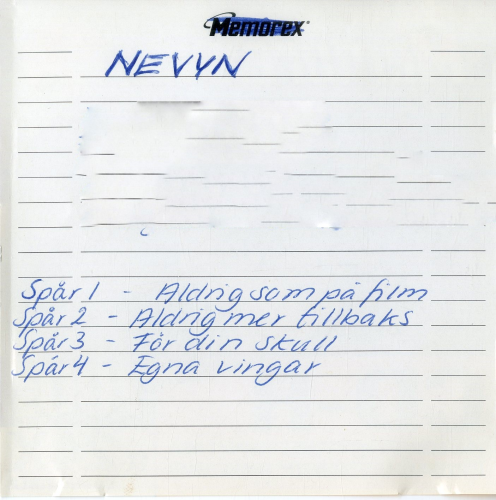 Memorex
NEVYN
Spår 1 - Aldrig som på film
Spår 2 - Aldrig mer tillbaks
Spår 3 - För din skull
Spår 4 - Egna vingar